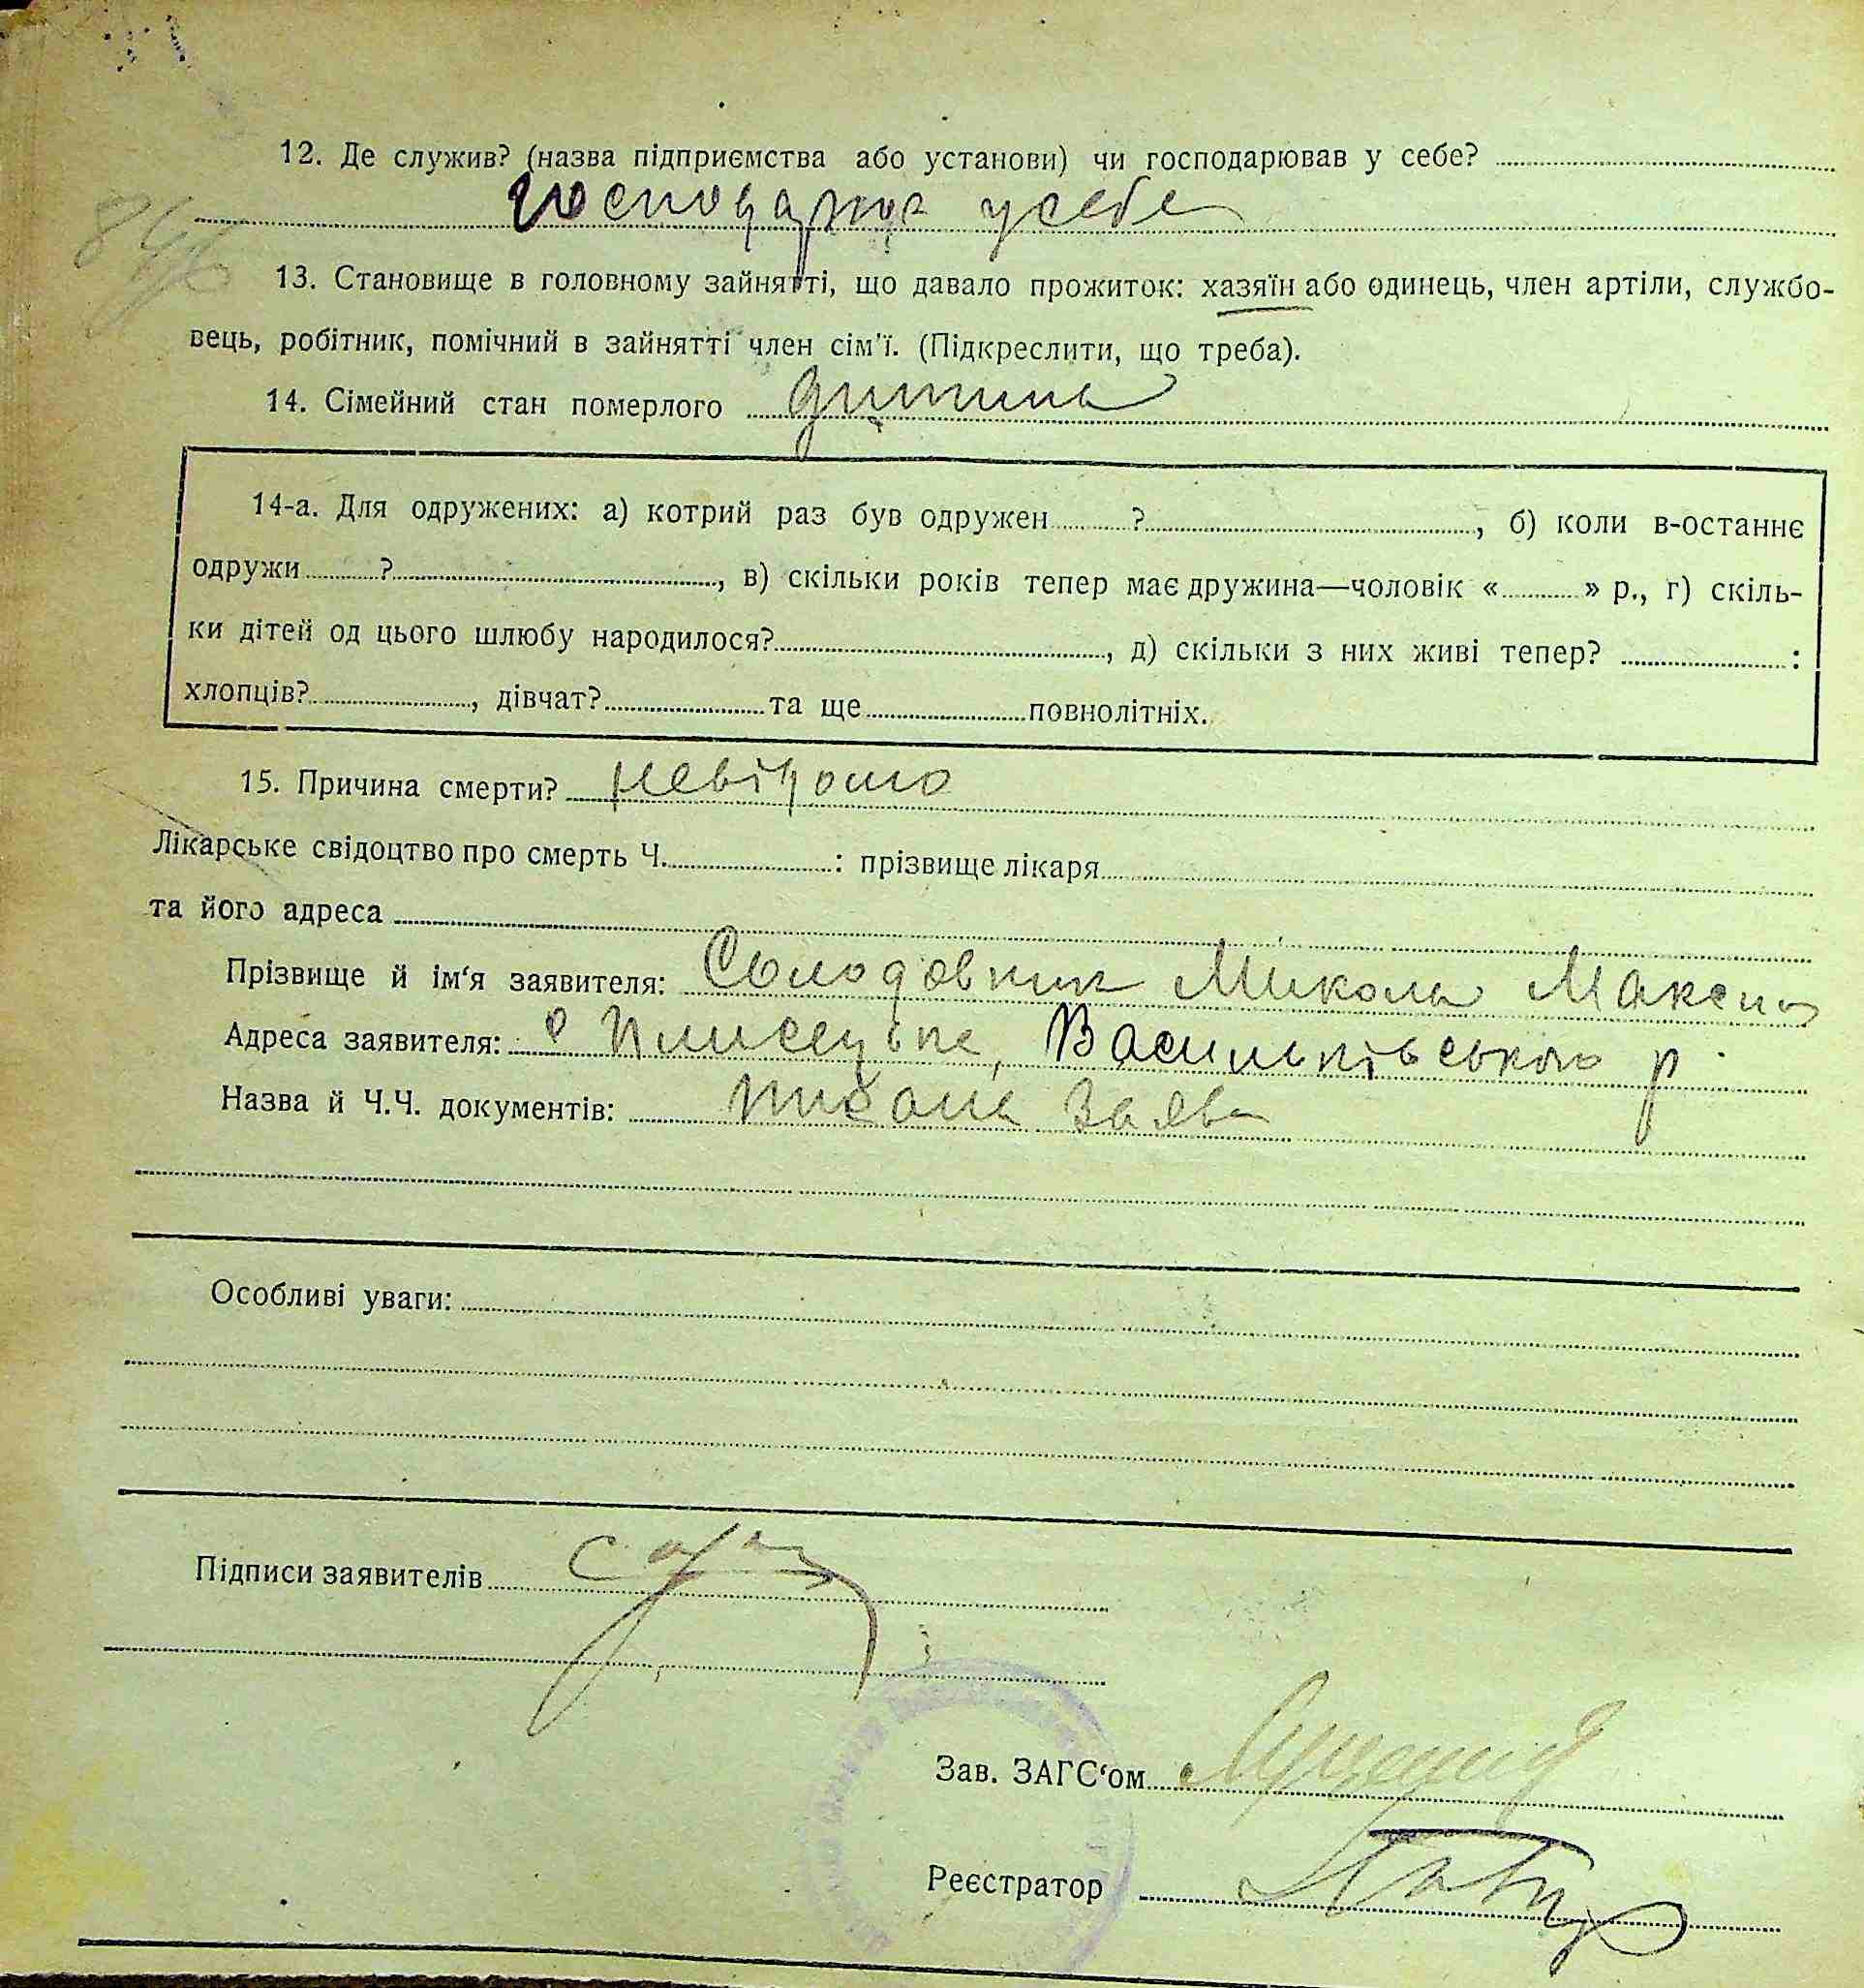 12. Де служив? (назва підприємства або установи) чи господарював у себе?
господарює у себе
13. Становище в головному зайнятті, що давало прожиток: хазяїн або одинець, член артіли, службо-
вець, робітник, помічний в зайнятті член сім'ї. (Підкреслити, що треба).
14. Сімейний стан померлого дитина
14-а. Для одружених: а) котрий раз був одружен ? , б) коли в-останнє
одружи ? , в) скільки років тепер має дружина—чоловік « » р., г) скіль-
ки дітей од цього шлюбу народилося? , д) скільки з них живі тепер? :
хлопців? , дівчат? та ще повнолітніх.
15. Причина смерти? невідомо
Лікарське свідоцтво про смерть Ч. : прізвище лікаря
та його адреса
Прізвище й ім'я заявителя: Солодовник Микола Максим
Адреса заявителя: с Плисецьке, Васильківського р.
Назва й Ч.Ч. документів: заява
Особливі уваги:
Підписи заявителів
Зав. ЗАГС'ом
Реєстратор